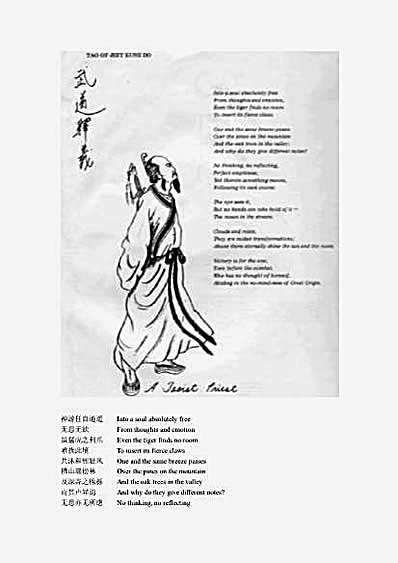 TAO OF JEET KUNE DO
武
道
釋
義
Into a soul absolutely free
From thoughts and emotion,
Even the tiger finds no room
To insert its fierce claws.
One and the same breeze passes
Over the pines on the mountain
And the oak trees in the valley;
And why do they give different notes?
No thinking, no reflecting,
Perfect emptiness;
Yet therein something moves,
Following its own course.
The eye sees it,
But no hands can take hold of it —
The moon in the stream.
Clouds and mists,
They are midair transformations;
Above them eternally shine the sun and the moon.
Victory is for the one,
Even before the combat,
Who has no thought of himself,
Abiding in the no-mind-ness of Great Origin.
A Taoist Priest
神游任自逍遥 Into a soul absolutely free
无思无欲 From thoughts and emotion
猛虎之利爪 Even the tiger finds no room
To insert its fierce claws
共沐和煦轻风 One and the same breeze passes
Over the pines on the mountain
And the oak trees in the valley
And why do they give different notes?
无思亦无所虑 No thinking, no reflecting